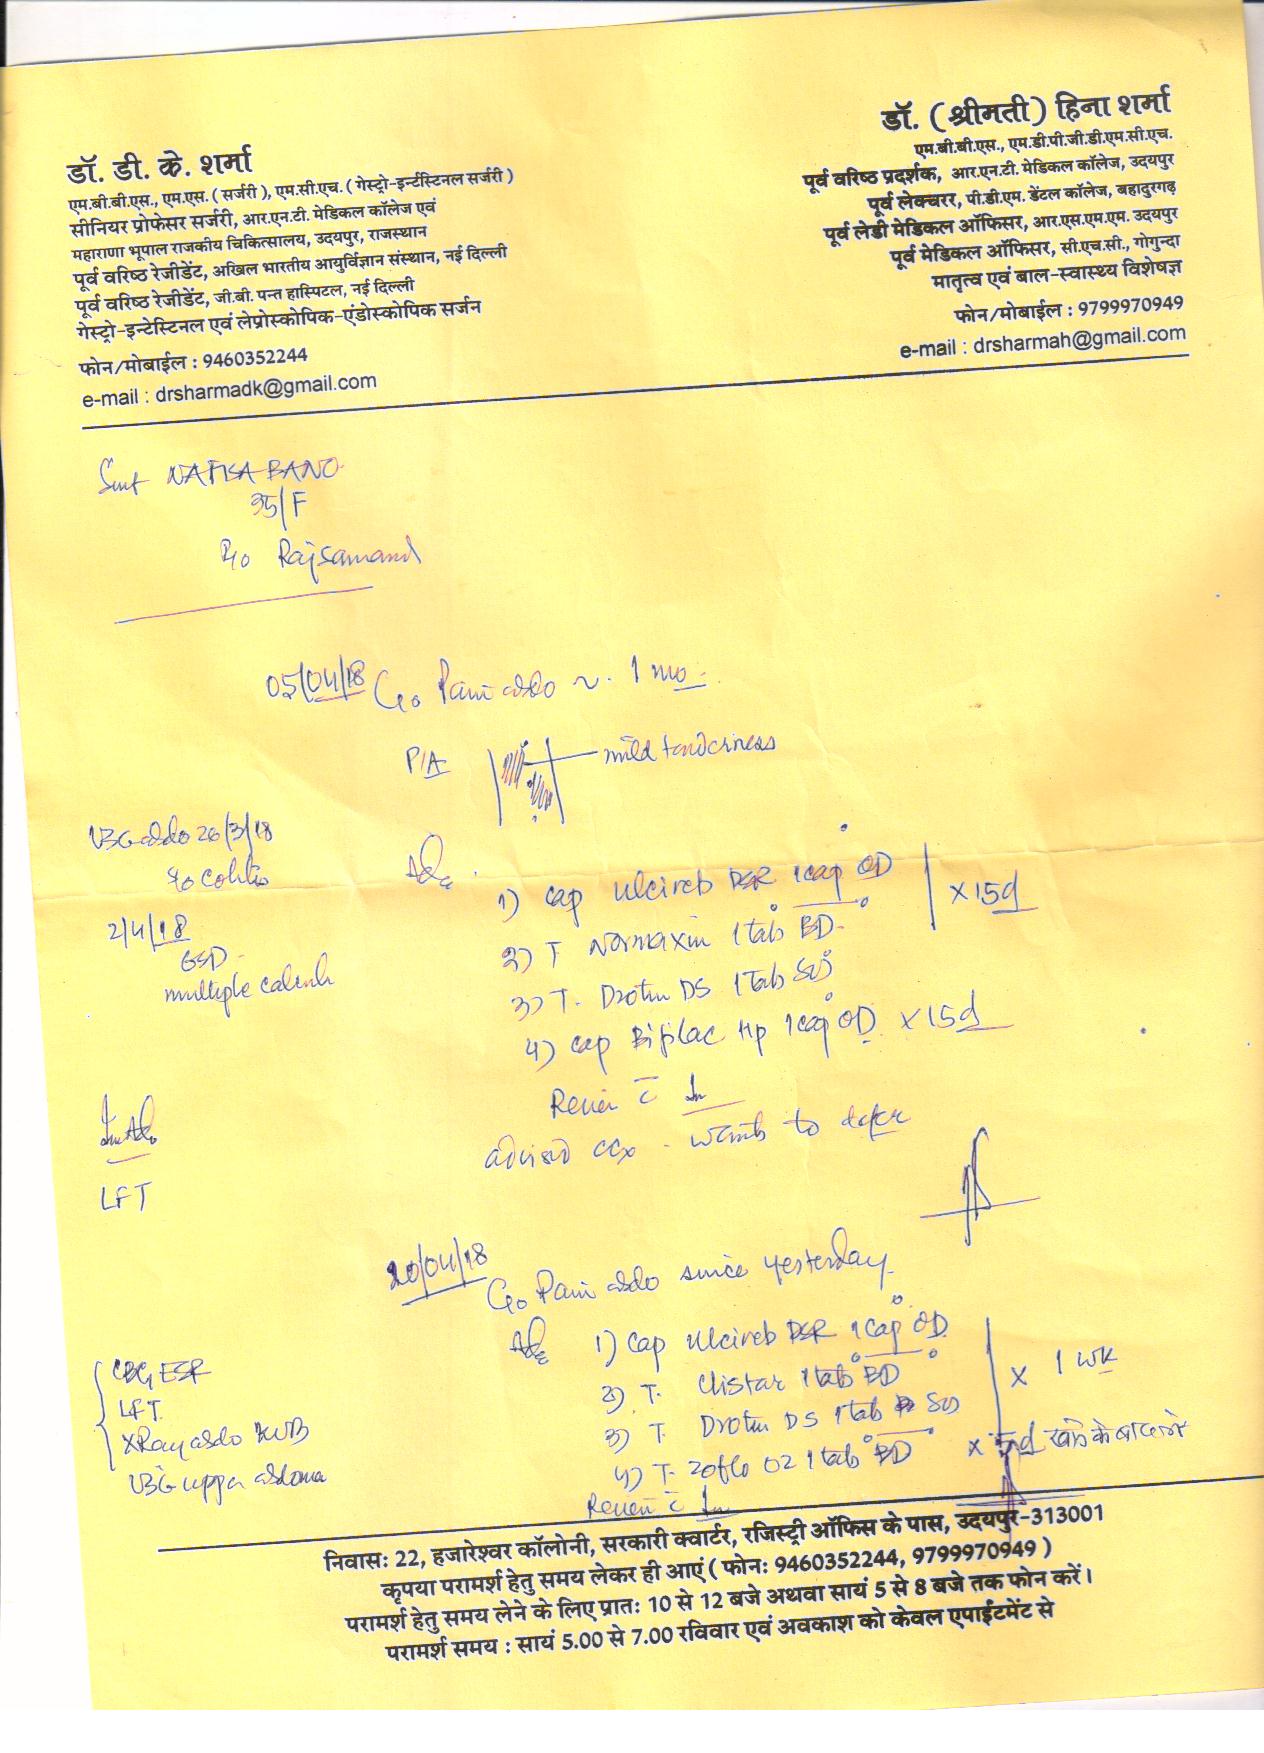 डॉ. डी. के. शर्मा
एम.बी.बी.एस., एम.एस. ( सर्जरी ), एम.सी.एच. ( गेस्ट्रो-इन्टेंस्टिनल सर्जरी )
सीनियर प्रोफेसर सर्जरी, आर.एन.टी. मेडिकल कॉलेज एवं
महाराणा भूपाल राजकीय चिकित्सालय, उदयपुर, राजस्थान
पूर्व वरिष्ठ रेजीडेंट, अखिल भारतीय आयुर्विज्ञान संस्थान, नई दिल्ली
पूर्व वरिष्ठ रेजीडेंट, जी.बी. पन्त हास्पिटल, नई दिल्ली
गेस्ट्रो-इन्टेस्टिनल एवं लेप्रोस्कोपिक-एंडोस्कोपिक सर्जन
फोन/मोबाईल : 9460352244
e-mail : drsharmadk@gmail.com
डॉ. ( श्रीमती ) हिना शर्मा
एम.बी.बी.एस., एम.डी.पी.जी.डी.एम.सी.एच.
पूर्व वरिष्ठ प्रदर्शक, आर.एन.टी. मेडिकल कॉलेज, उदयपुर
पूर्व लेक्चरर, पी.डी.एम. डेंटल कॉलेज, बहादुरगढ़
पूर्व लेडी मेडिकल ऑफिसर, आर.एस.एम.एम. उदयपुर
पूर्व मेडिकल ऑफिसर, सी.एच.सी., गोगुन्दा
मातृत्व एवं बाल-स्वास्थ्य विशेषज्ञ
फोन/मोबाईल : 9799970949
e-mail : drsharmah@gmail.com
Smt NAFISA BANO
35/F
R/o Rajsamand
05/04/18 C/o Pain abdo ~ 1 mo
P/A mild tenderness
USG abdo 26/3/18
s/o colitis
2/4/18
GSD
multiple calculi
Adv
1) Cap Ulcireb DSR 1cap OD
2) T Normaxin 1tab BD x 15d
3) T. Drotin DS 1Tab SOS
4) Cap Bifilac Hp 1cap OD x 15d
Review c̄
advised CCx - wants to defer
LFT
20/04/18
C/o Pain abdo since yesterday
Adv 1) Cap Ulcireb DSR 1Cap OD
2) T. Clistar 1tab BD x 1 wk
3) T Drotin DS 1tab SOS
4) T. Zoflo OZ 1tab BD x 5d खाने के बाद
Review c̄
CBC, ESR
LFT
XRay abdo KUB
USG upper abdomen
निवासः 22, हजारेश्वर कॉलोनी, सरकारी क्वार्टर, रजिस्ट्री ऑफिस के पास, उदयपुर-313001
कृपया परामर्श हेतु समय लेकर ही आएं ( फोनः 9460352244, 9799970949 )
परामर्श हेतु समय लेने के लिए प्रातः 10 से 12 बजे अथवा सायं 5 से 8 बजे तक फोन करें।
परामर्श समय : सायं 5.00 से 7.00 रविवार एवं अवकाश को केवल एपाईंटमेंट से